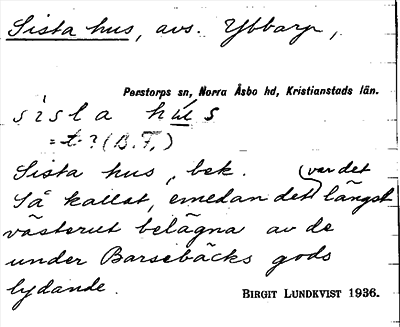 Sista hus, avs. Ybbarp,
Perstorps sn, Norra Åsbo hd, Kristianstads län.
sisla hús
= t? (B.F.)
Sista hus, bek.
var det
Så kallat, emedan det längst
västerut belägna av de
under Barsebäcks gods
lydande.
BIRGIT LUNDKVIST 1936.